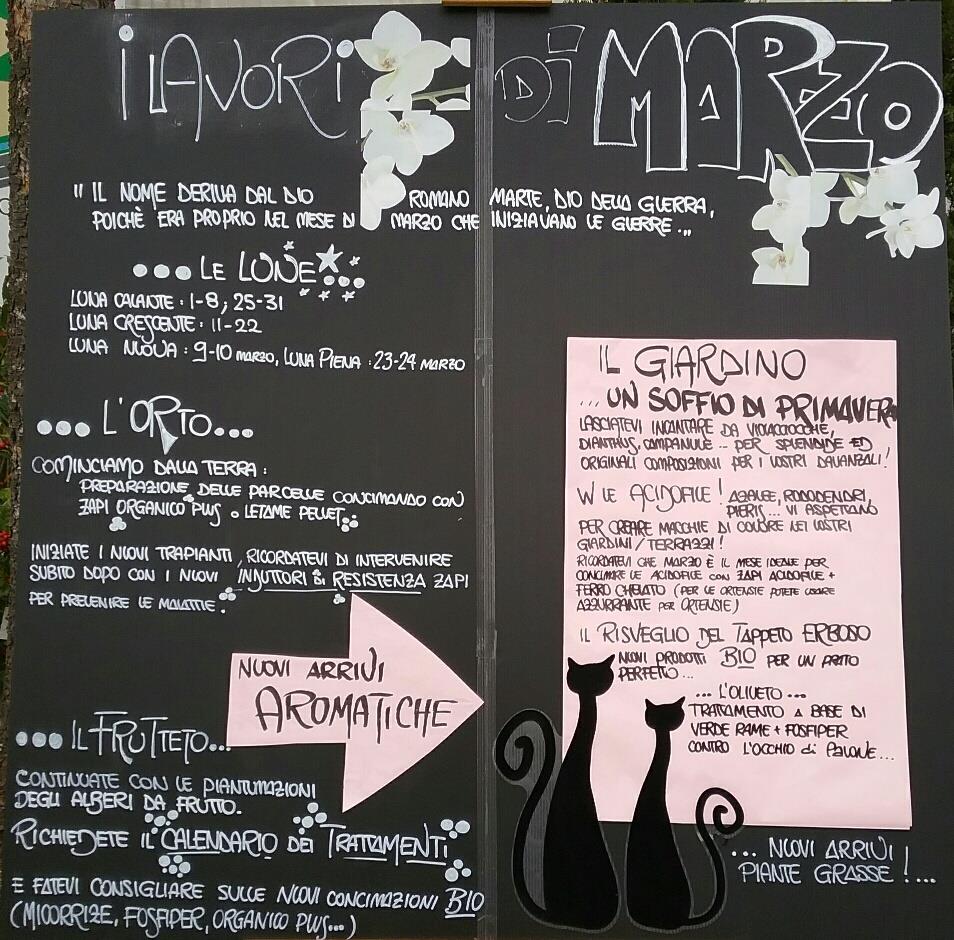 I LAVORI DI MARZO
" IL NOME DERIVA DAL DIO ROMANO MARTE, DIO DELLA GUERRA,
POICHÈ ERA PROPRIO NEL MESE DI MARZO CHE INIZIAVANO LE GUERRE...
... LE LUNE ...
LUNA CALANTE: 1-8; 25-31
LUNA CRESCENTE: 11-22
LUNA NUOVA: 9-10 MARZO, LUNA PIENA: 23-24 MARZO
... L'ORTO...
COMINCIAMO DALLA TERRA:
PREPARAZIONE DELLE PARCELLE CONCIMANDO CON
ZAPI ORGANICO PLUS o LETAME PELLET
INIZIATE I NUOVI TRAPIANTI, RICORDATEVI DI INTERVENIRE
SUBITO DOPO CON I NUOVI INDUTTORI di RESISTENZA ZAPI
PER PREVENIRE LE MALATTIE.
NUOVI ARRIVI
AROMATICHE
... IL FRUTTETO...
CONTINUATE CON LE PIANTUMAZIONI
DEGLI ALBERI DA FRUTTO.
RICHIEDETE IL CALENDARIO DEI TRATTAMENTI
E FATEVI CONSIGLIARE SULLE NUOVI CONCIMAZIONI BIO
(MICORRIZE, FOSFIPER, ORGANICO PLUS...)
IL GIARDINO
... UN SOFFIO DI PRIMAVERA
LASCIATEVI INCANTARE DA VIOLACCIOCCHE,
DIANTHUS, CAMPANULE... PER SPLENDIDE ED
ORIGINALI COMPOSIZIONI PER I VOSTRI DAVANZALI!
W LE ACIDOFILE! AZALEE, RODODENDRI,
PIERIS... VI ASPETTANO
PER CREARE MACCHIE DI COLORE NEI VOSTRI
GIARDINI/TERRAZZI!
RICORDATEVI CHE MARZO È IL MESE IDEALE PER
CONCIMARE LE ACIDOFILE CON ZAPI ACIDOFILE +
FERRO CHELATO (PER LE ORTENSIE POTETE USARE
AZZURRANTE PER ORTENSIE)
IL RISVEGLIO DEL TAPPETO ERBOSO
NUOVI PRODOTTI BIO PER UN PRATO
PERFETTO...
... L'OLIVETO ...
TRATTAMENTO A BASE DI
VERDE RAME + FOSFIPER
CONTRO L'OCCHIO di PAVONE...
... NUOVI ARRIVI
PIANTE GRASSE!...